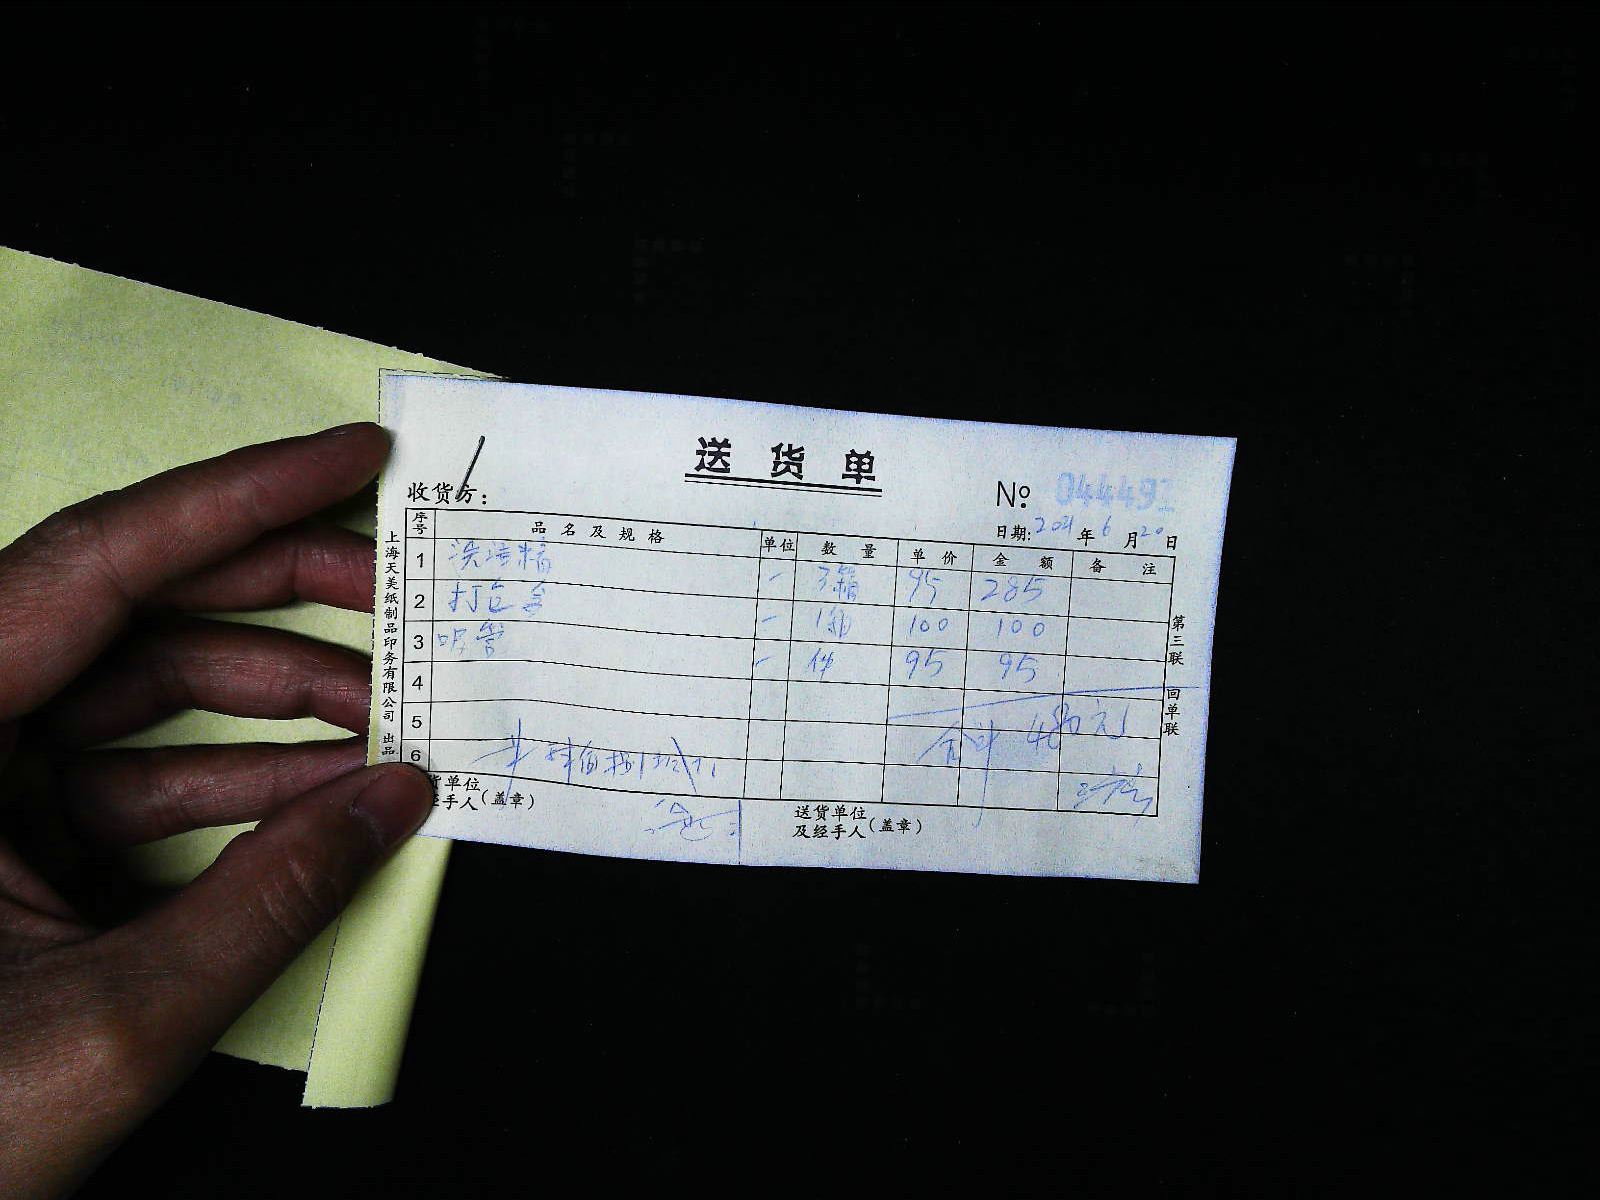 送货单
收货方：
№ 04449
日期: 2021 年 6 月 20 日
序号 品名及规格 单位 数量 单价 金额 备注
1 洗洁精 3箱 95 285
2 打包盒 1箱 100 100
3 吸管 件 95 95
4
5 合计 480元
6
货单位
经手人(盖章)
送货单位
及经手人(盖章)
上海天美纸制品印务有限公司 出品
第三联 回单联